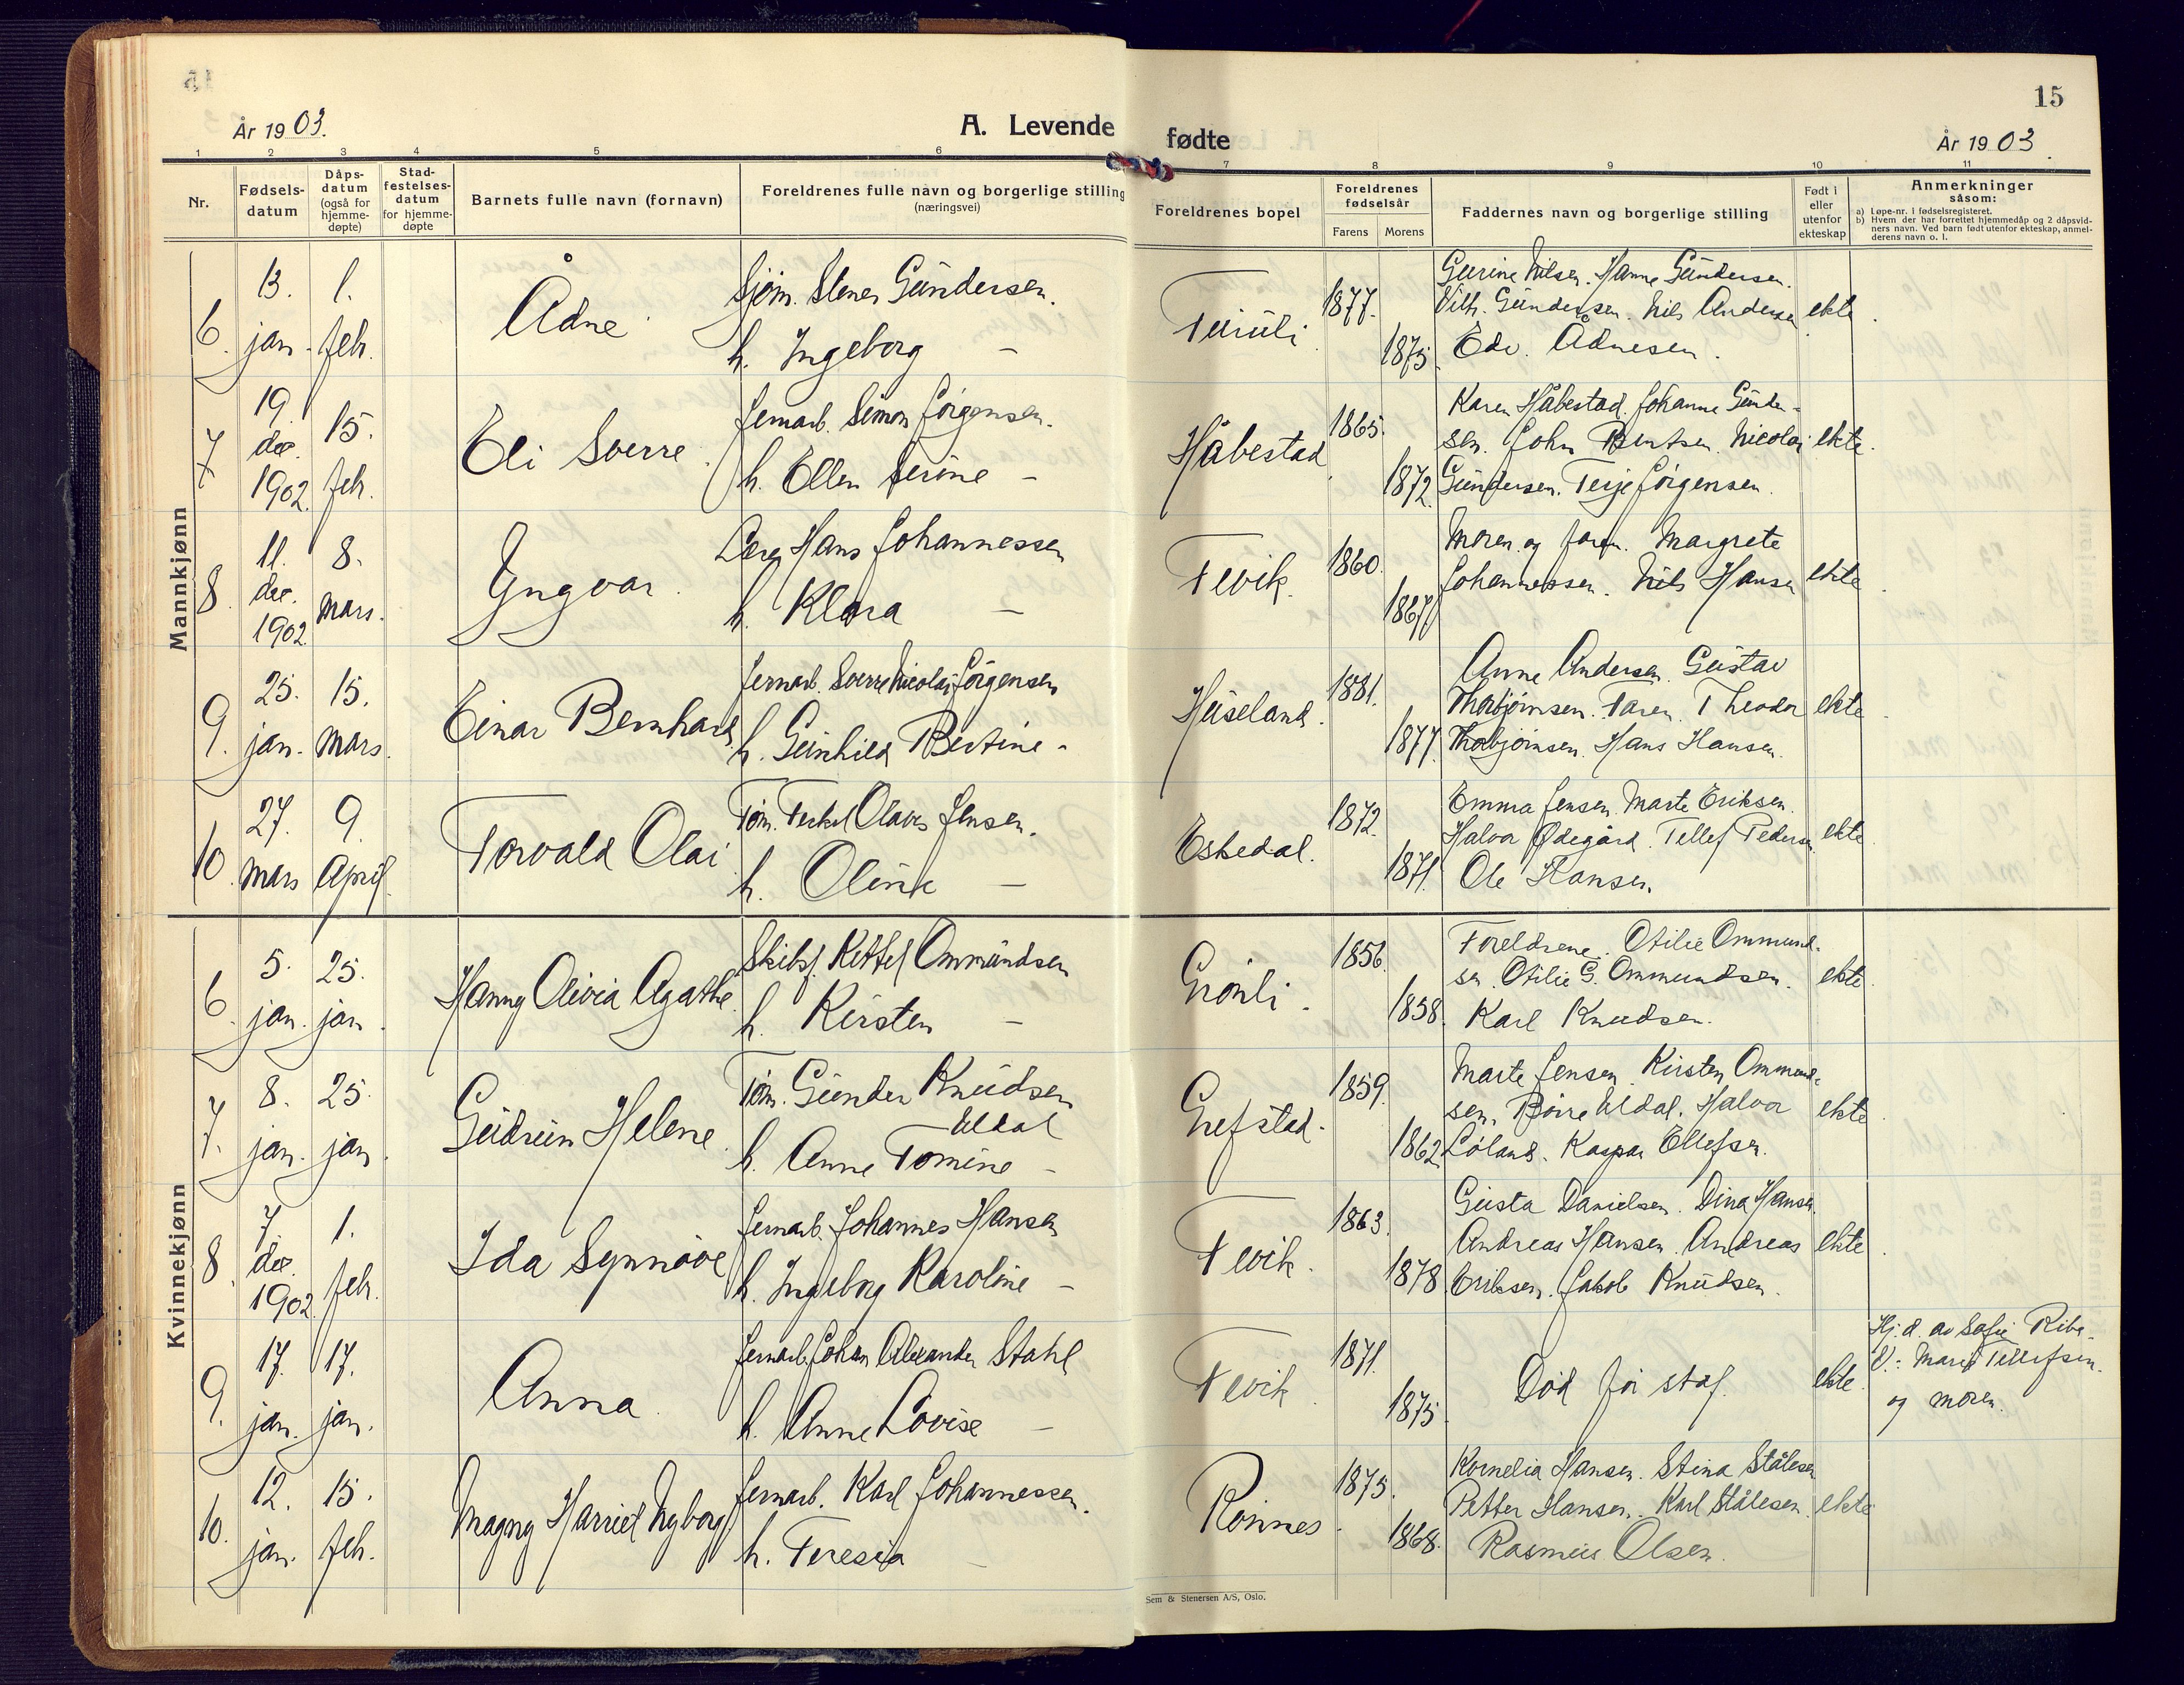 15
År 1903.
A. Levende fødte
År 1903.
1 2 3 4 5 6 7 8 9 10 11
Nr.
Fødsels-
datum
Dåps-
datum
(også for
hjemme-
døpte)
Stad-
festelses-
datum
for hjemme-
døpte
Barnets fulle navn (fornavn)
Foreldrenes fulle navn og borgerlige stilling
(næringsvei)
Foreldrenes bopel
Foreldrenes
fødselsår
Farens Morens
Faddernes navn og borgerlige stilling
Født i
eller
utenfor
ekteskap
Anmerkninger
såsom:
a) Løpe-nr. i fødselsregisteret.
b) Hvem der har forrettet hjemmedåp og 2 dåpsvid-
ners navn. Ved barn født utenfor ekteskap, anmel-
derens navn o. l.
Mannkjønn
6. 13. jan. 1. feb. Ådne
Sjøm. Stener Gundersen.
h. Ingeborg –
Furuli 1877. 1875
Gurine Nilsen. Hanne Gundersen.
Vilh. Gundersen. Nils Andersen
Edv. Ådnesen.
ekte
7 19. dec. 1902. 15. feb. Eli Sverre
Jernarb. Simon Jörgensen.
h. Ellen Serine –
Håbestad 1865. 1872
Karen Håbestad. Johanne Gunder-
sen. John Berntsen. Nicolai
Gundersen. Terje Jörgensen.
ekte.
8. 11. dec. 1902. 8. mars. Yngvar
Hans Johannessen
h. Klara –
Fevik. 1860. 1867
Moren og faren. Margrete
Johannessen. Nils Hansen
ekte
9. 25. jan. 15. mars. Einar Bernhard
Jernarb. Sverre Nicolai Jörgensen
h. Gunhild Bertine –
Huseland. 1881. 1877.
Anne Andersen. Gustav
Thorbjörnsen. Faren. Theodor
Thorbjörnsen. Hans Hansen.
ekte
10. 27. mars 9. April Torvald Olai
Töm. Terkel Olaus Jensen.
h. Oline –
Eskedal. 1872. 1871.
Emma Jensen. Marte Eriksen.
Halvor Ødegård. Tellef Pedersen.
Ole Hansen.
ekte
Kvinnekjønn
6. 5. jan. 25. jan. Hanny Olivia Agathe
Skibsf. Kittel Ommundsen
h. Kirsten –
Grönli. 1856. 1858.
Foreldrene. Otilie Ommund-
sen. Otilie G. Ommundsen.
Karl Knudsen.
ekte
7. 8. jan. 25. jan. Gudrun Helene
Töm. Gunder Knudsen
Uldal
h. Anne Tomine –
Grefstad. 1859. 1862.
Marte Jensen. Kirsten Ommund-
sen. Börre Uldal. Halvor
Löland. Kaspar Ellefsen.
ekte
8. 7. dec. 1902. 1. feb. Ida Synnöve
Jernarb. Johannes Hansen
h. Ingeborg Karoline –
Fevik. 1863. 1878.
Gusta Danielsen. Dina Hansen.
Andreas Hansen. Andreas
Eriksen. Jakob Knudsen.
ekte
9. 17. jan. 17. jan. Anna
Jernarb. Johan Alexander Stahl
h. Anne Lovise –
Fevik 1871. 1875.
Död för staf.
ekte.
Hj. d. av Sofie Ribe.
V.: Marie Tellefsen.
og moren.
10. 12. jan. 15. feb. Magny Harriet Nyborg
Jernarb. Karl Johannessen.
h. Teresia –
Rönnes. 1875. 1868.
Kornelia Hansen. Stina Stålesen
Petter Hansen. Karl Stålesen.
Rasmus Olsen.
ekte
Sem & Stenersen A/S, Oslo.